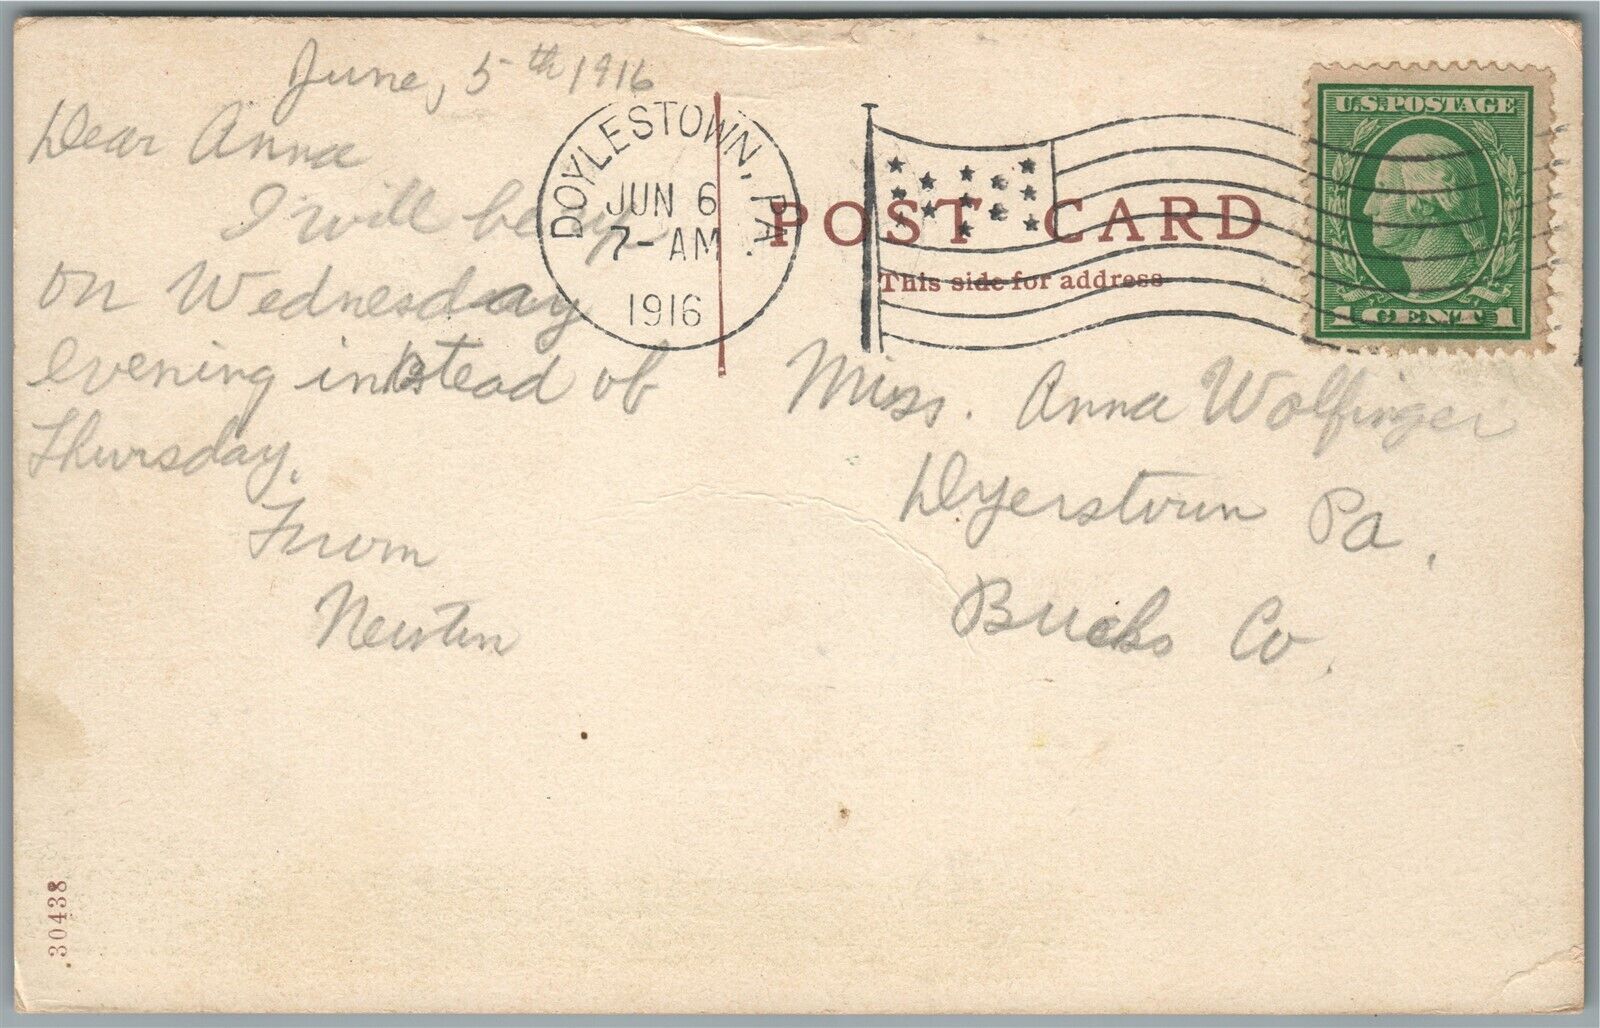 June, 5th 1916
Dear Anna
I will be up
on Wednesday
evening instead of
Thursday.
From
Newton
DOYLESTOWN, PA.
JUN 6
7-AM
1916
POST CARD
This side for address
U.S. POSTAGE
1 CENT 1
Miss. Anna Wolfinger
Dyerstown Pa.
Bucks Co.
30438